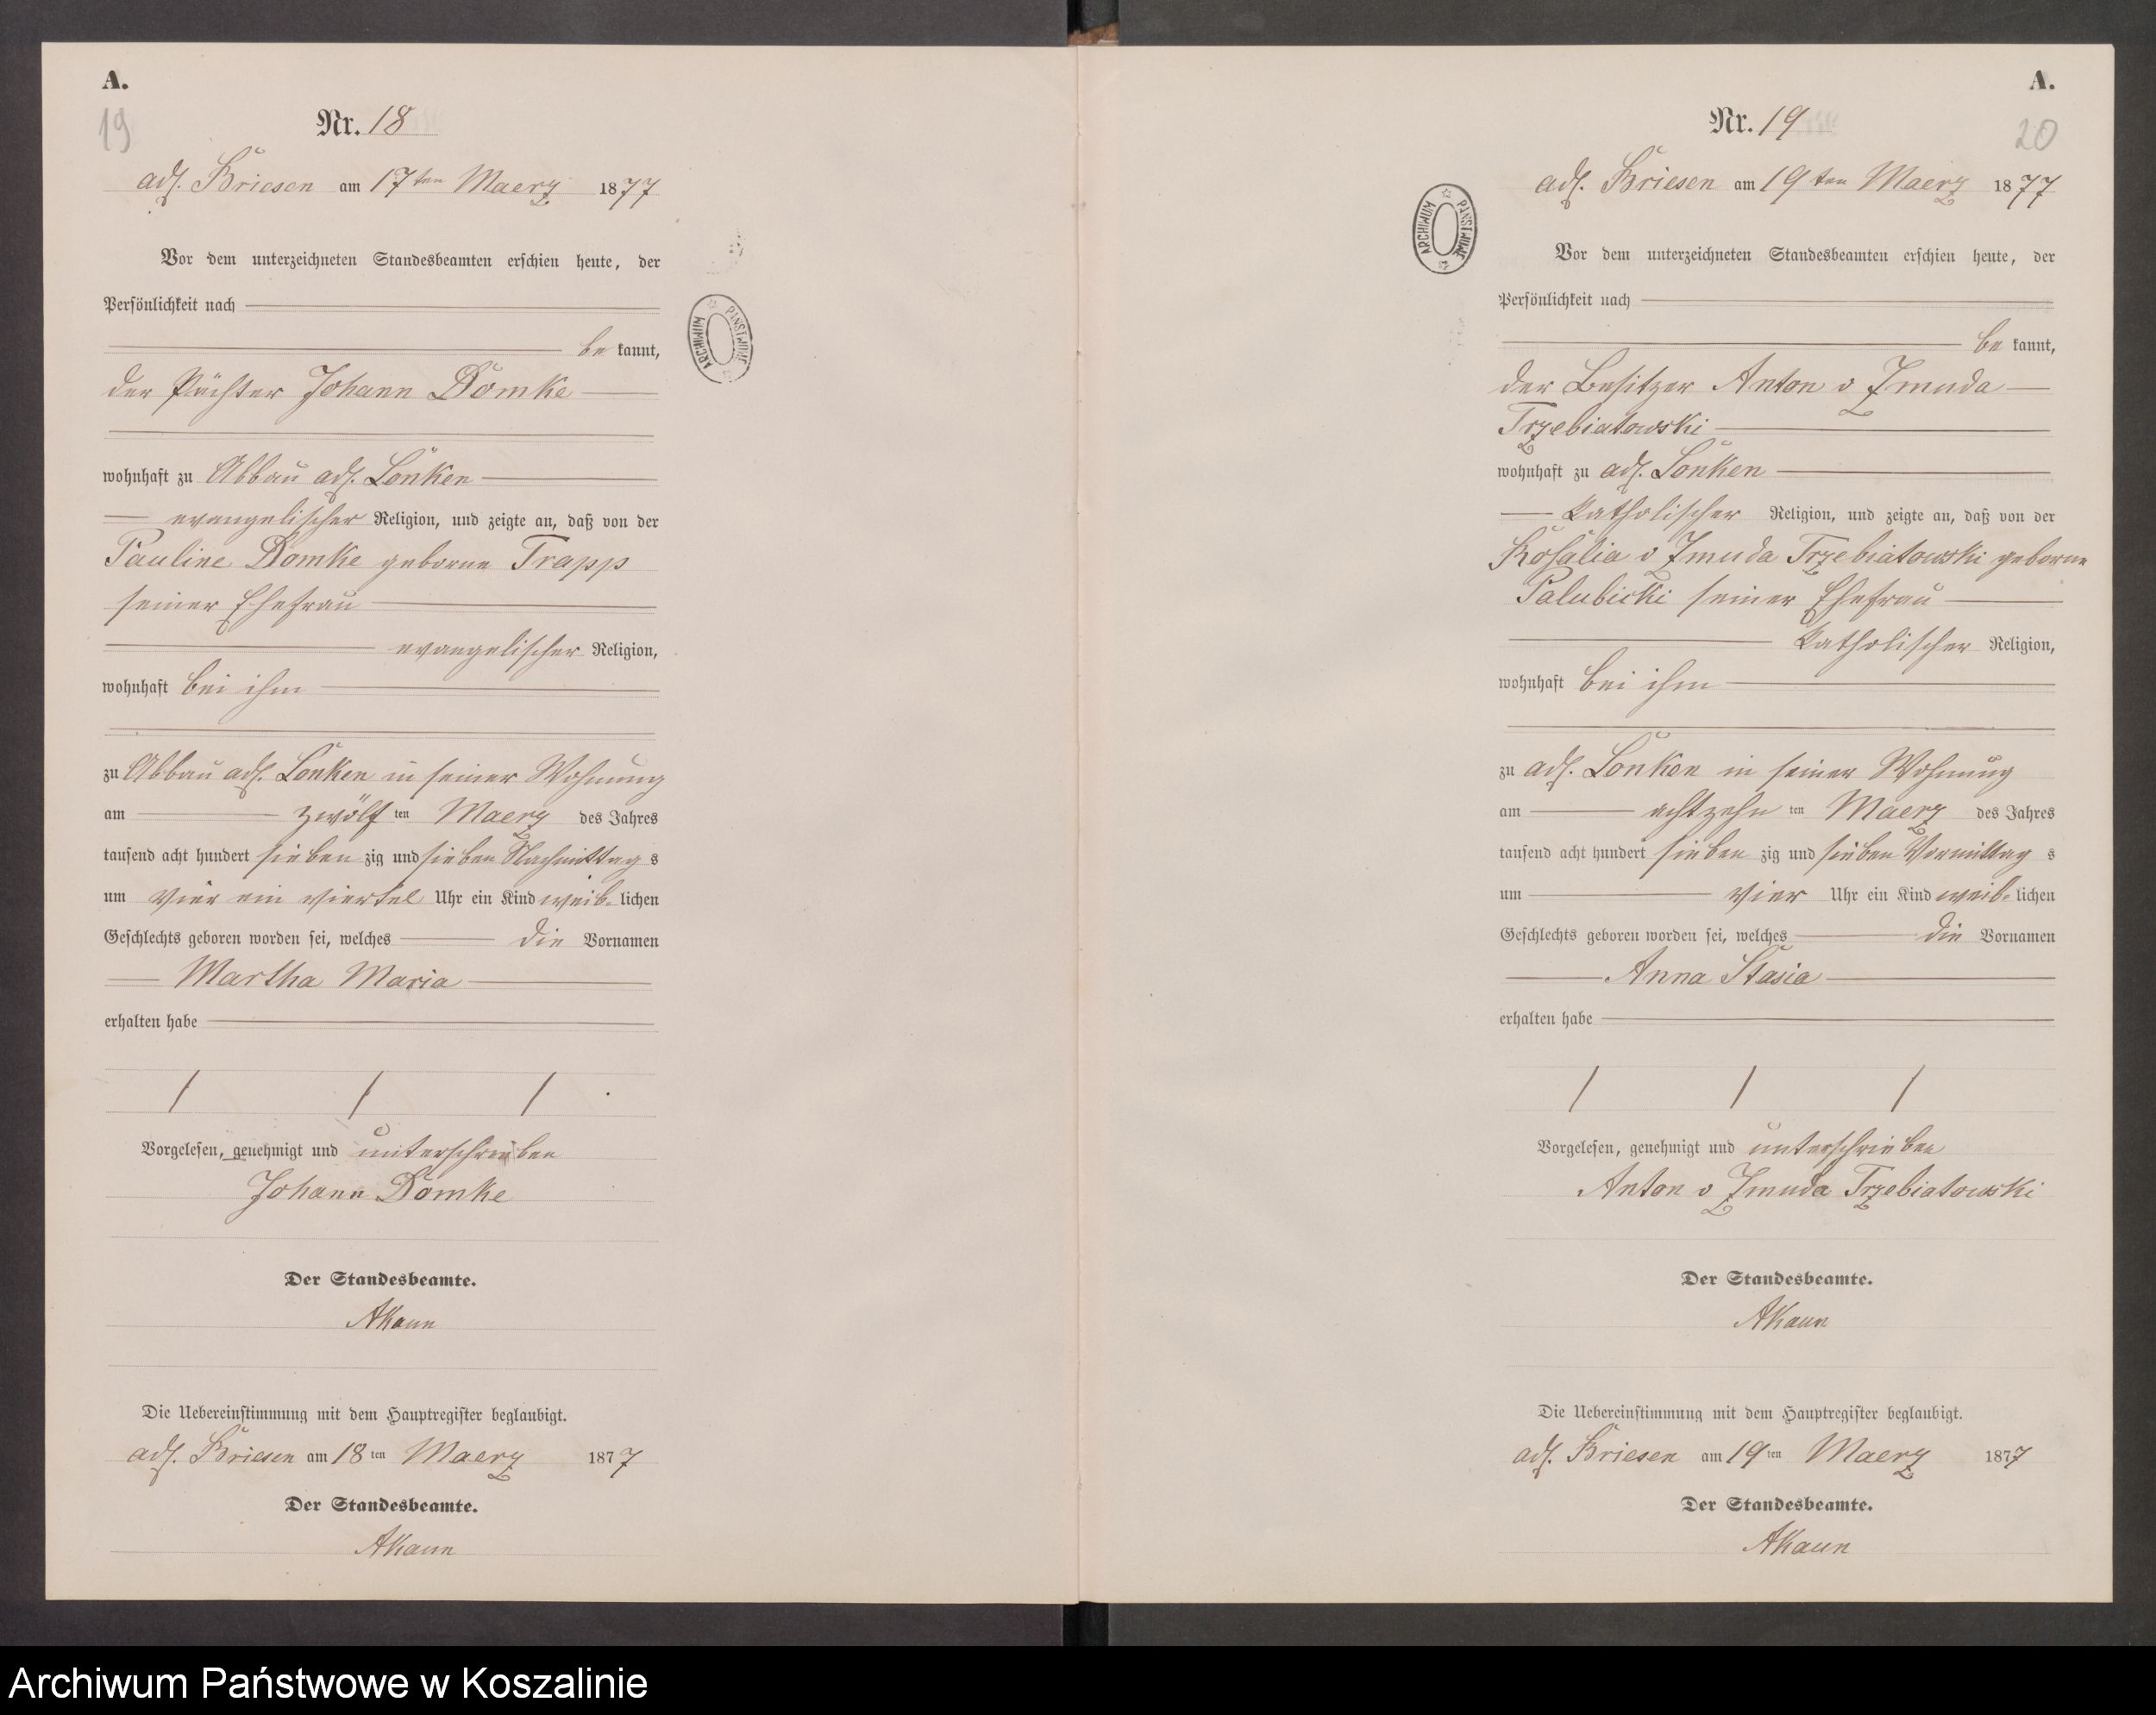 A.
19
Nr. 18
adl. Briesen am 17ten Maerz 1877
Vor dem unterzeichneten Standesbeamten erschien heute, der
Persönlichkeit nach
be kannt,
der Pächter Johann Domke
wohnhaft zu Abbau adl. Lonken
evangelischer Religion, und zeigte an, daß von der
Pauline Domke geborne Trapp
seiner Ehefrau
evangelischer Religion,
wohnhaft bei ihm
zu Abbau adl. Lonken in seiner Wohnung
am zwölf ten Maerz des Jahres
tausend acht hundert sieben zig und sieben Nachmittag s
um vier ein viertel Uhr ein Kind weib- lichen
Geschlechts geboren worden sei, welches die Vornamen
Martha Maria
erhalten habe
Vorgelesen, genehmigt und unterschrieben
Johann Domke
Der Standesbeamte.
AKaun
Die Uebereinstimmung mit dem Hauptregister beglaubigt.
adl. Briesen am 18 ten Maerz 1877
Der Standesbeamte.
AKaun
ARCHIWUM PAŃSTWOWE
A.
20
Nr. 19
adl. Briesen am 19ten Maerz 1877
ARCHIWUM PAŃSTWOWE
Vor dem unterzeichneten Standesbeamten erschien heute, der
Persönlichkeit nach
be kannt,
der Besitzer Anton v Zmuda
Trzebiatowski
wohnhaft zu adl. Lonken
katholischer Religion, und zeigte an, daß von der
Rosalia v Zmuda Trzebiatowski geborne
Palubicki seiner Ehefrau
katholischer Religion,
wohnhaft bei ihm
zu adl. Lonken in seiner Wohnung
am achtzehn ten Maerz des Jahres
tausend acht hundert sieben zig und sieben Vormittag s
um vier Uhr ein Kind weib- lichen
Geschlechts geboren worden sei, welches die Vornamen
Anna Stasia
erhalten habe
Vorgelesen, genehmigt und unterschrieben
Anton v Zmuda Trzebiatowski
Der Standesbeamte.
AKaun
Die Uebereinstimmung mit dem Hauptregister beglaubigt.
adl. Briesen am 19 ten Maerz 1877
Der Standesbeamte.
AKaun
Archiwum Państwowe w Koszalinie